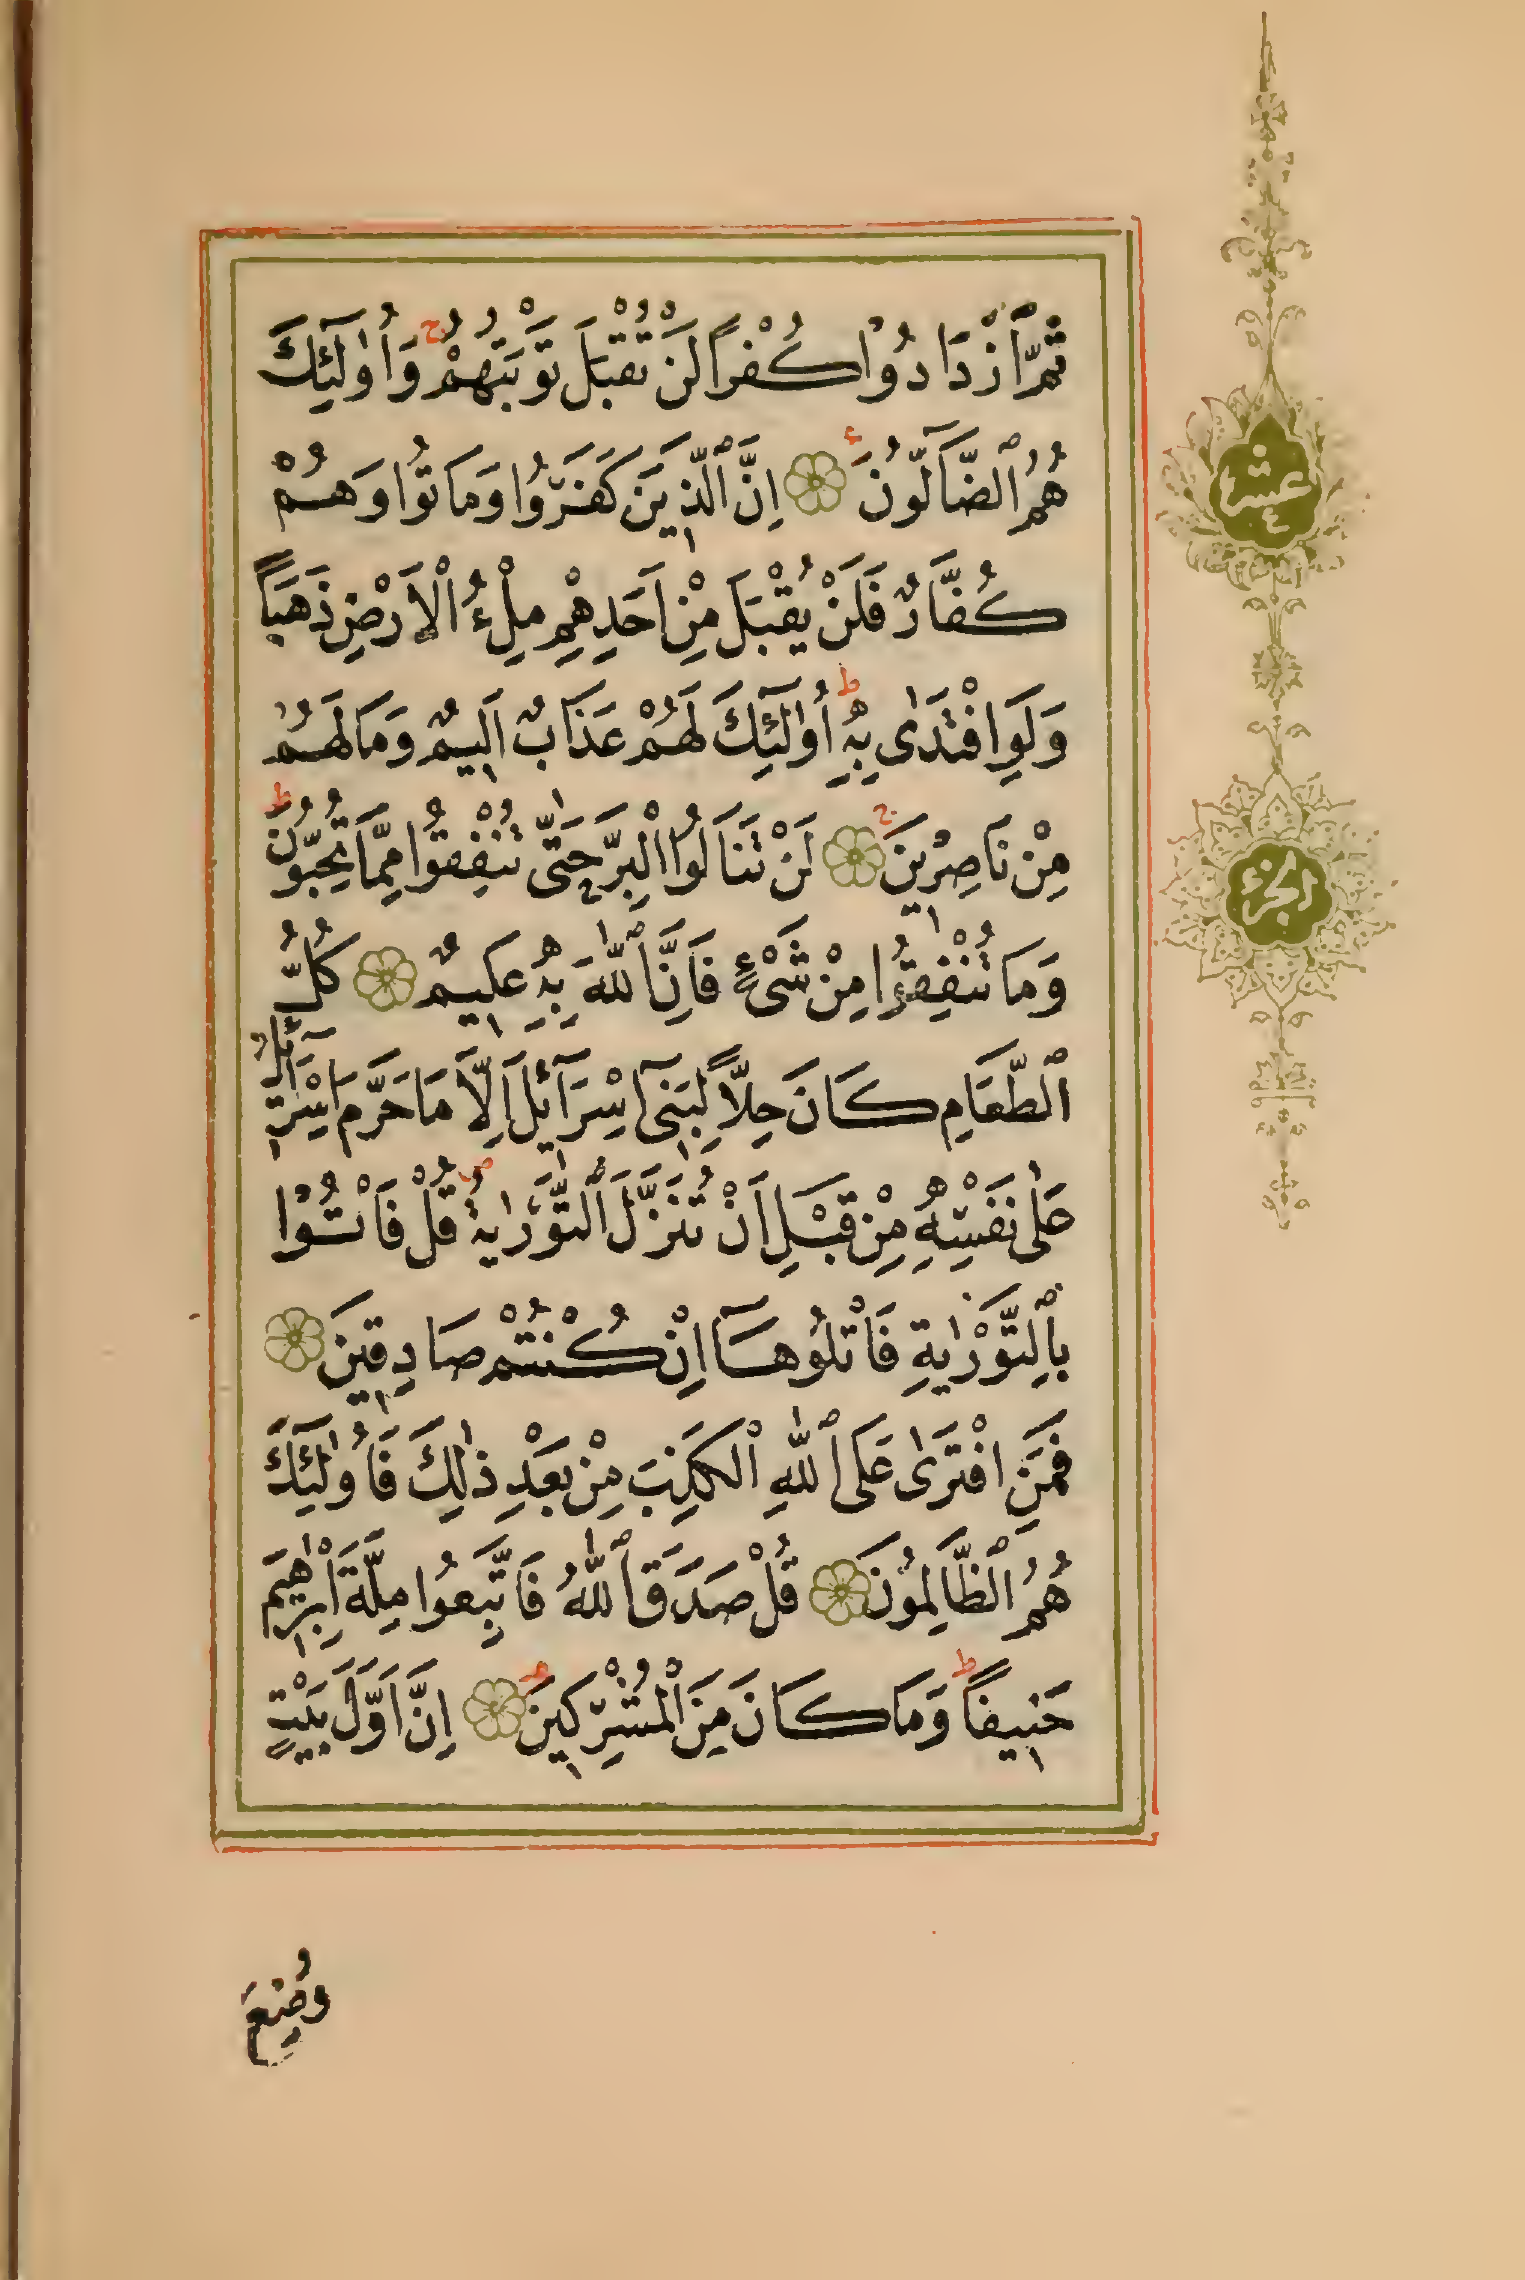 ثُمَّ ٱزْدَادُوا كُفْراً لَنْ تُقْبَلَ تَوْبَتُهُمْ ج وَأُولٰٓئِكَ
هُمُ ٱلضَّٓالُّونَ ع اِنَّ ٱلَّذِينَ كَفَرُوا وَمَاتُوا وَهُمْ
كُفَّارٌ فَلَنْ يُقْبَلَ مِنْ اَحَدِهِمْ مِلْءُ الْاَرْضِ ذَهَباً
وَلَوِ افْتَدٰى بِهِ ط أُولٰٓئِكَ لَهُمْ عَذَابٌ اَلِيمٌ وَمَا لَهُمْ
مِنْ نَاصِرِينَ ج لَنْ تَنَالُوا الْبِرَّ حَتّٰى تُنْفِقُوا مِمَّا تُحِبُّونَ ط
وَمَا تُنْفِقُوا مِنْ شَىْءٍ فَاِنَّ ٱللّٰهَ بِهِ عَلِيمٌ كُلُّ
ٱلطَّعَامِ كَانَ حِلاًّ لِبَنِىٓ اِسْرَٓائِلَ اِلَّا مَا حَرَّمَ اِسْرَٓائِلُ
عَلٰى نَفْسِهِ مِنْ قَبْلِ اَنْ تُنَزَّلَ ٱلتَّوْرٰيةُ ص قُلْ فَاْتُوا
بِٱلتَّوْرٰيةِ فَاتْلُوهَٓا اِنْ كُنْتُمْ صَادِقِينَ
فَمَنِ افْتَرٰى عَلَى ٱللّٰهِ الْكَذِبَ مِنْ بَعْدِ ذٰلِكَ فَأُولٰٓئِكَ
هُمُ ٱلظَّالِمُونَ قُلْ صَدَقَ ٱللّٰهُ فَاتَّبِعُوا مِلَّةَ اِبْرٰهِيمَ
حَنِيفاً ط وَمَا كَانَ مِنَ الْمُشْرِكِينَ اِنَّ اَوَّلَ بَيْتٍ
وُضِعَ
عشر
الجزء